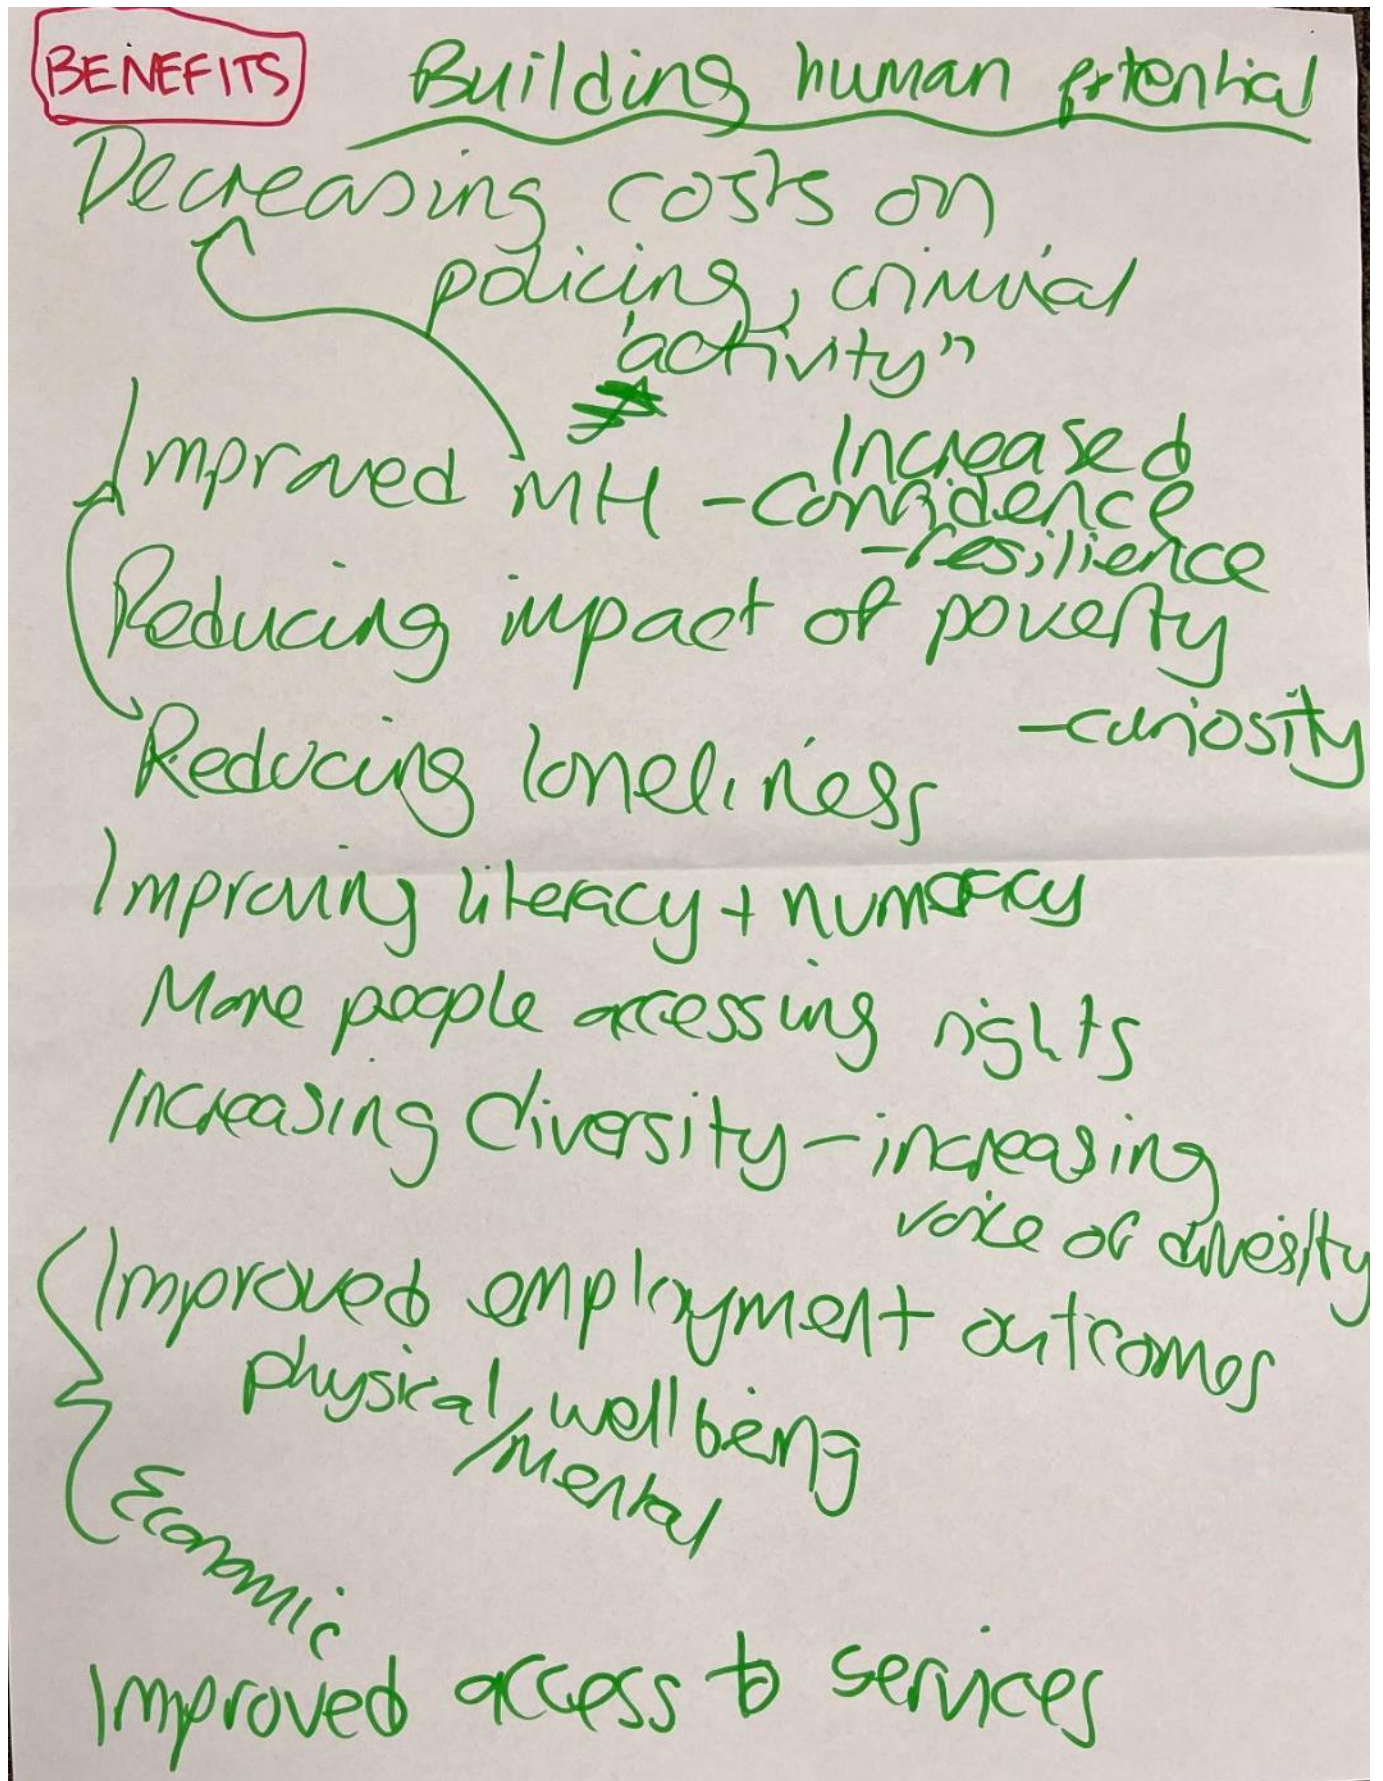 BENEFITS
Building human potential
Decreasing costs on
policing, criminal
"activity"
Improved MH - Increased
confidence
- resilience
Reducing impact of poverty
- curiosity
Reducing loneliness
Improving literacy + numeracy
More people accessing rights
Increasing diversity - increasing
voice of diversity
Improved employment outcomes
physical wellbeing
/mental
Economic
Improved access to services